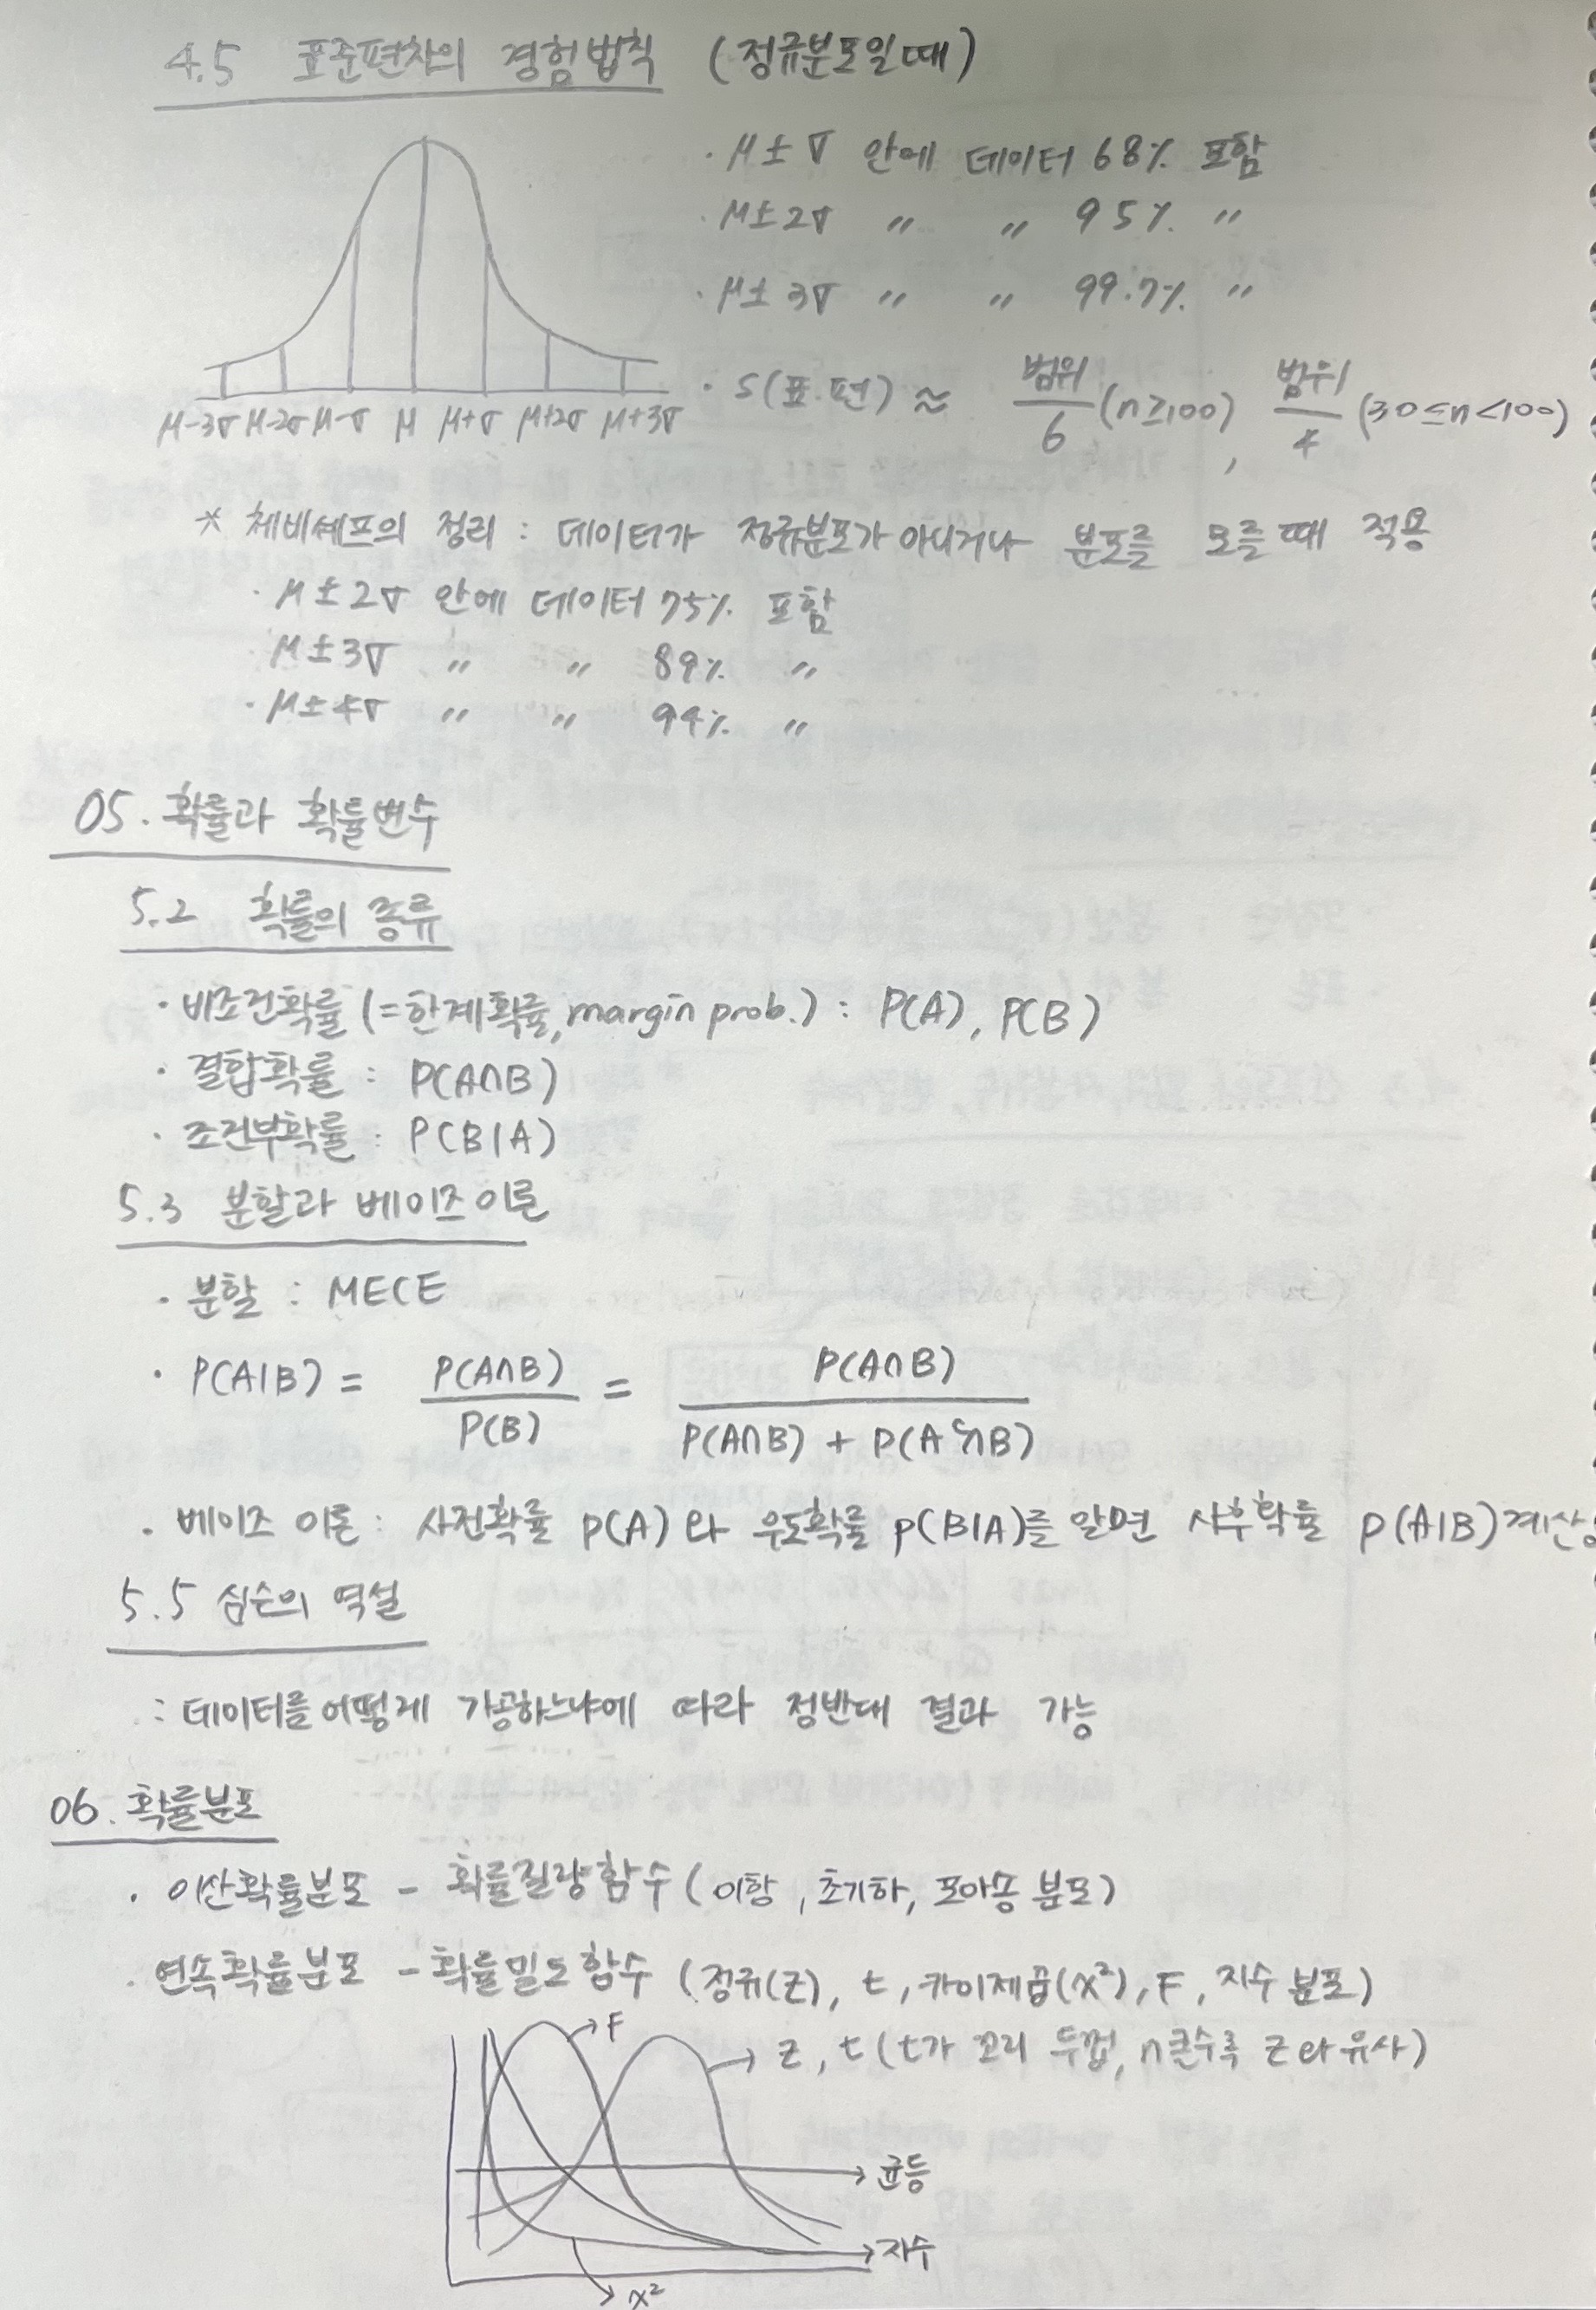 4.5 표준편차의 경험법칙 (정규분포일 때)
· μ±σ 안에 데이터 68% 포함
· μ±2σ 〃 〃 95% 〃
· μ±3σ 〃 〃 99.7% 〃
μ-3σ μ-2σ μ-σ μ μ+σ μ+2σ μ+3σ
· s(표.편) ≈ 범위/6 (n≥100), 범위/4 (30≤n<100)
* 체비셰프의 정리 : 데이터가 정규분포가 아니거나 분포를 모를 때 적용
· μ±2σ 안에 데이터 75% 포함
μ±3σ 〃 〃 89% 〃
· μ±4σ 〃 〃 94% 〃
05. 확률과 확률변수
5.2 확률의 종류
· 비조건확률 (=한계확률, margin prob.) : P(A), P(B)
· 결합확률 : P(A∩B)
· 조건부확률 : P(B|A)
5.3 분할과 베이즈 이론
· 분할 : MECE
· P(A|B) = P(A∩B)/P(B) = P(A∩B)/(P(A∩B) + P(Aᶜ∩B))
· 베이즈 이론 : 사전확률 P(A)와 우도확률 P(B|A)를 알면 사후확률 P(A|B) 계산
5.5 심슨의 역설
: 데이터를 어떻게 가공하느냐에 따라 정반대 결과 가능
06. 확률분포
· 이산확률분포 - 확률질량함수 (이항, 초기하, 포아송 분포)
· 연속확률분포 - 확률밀도함수 (정규(Z), t, 카이제곱(χ²), F, 지수 분포)
F
Z, t (t가 꼬리 두껍, n클수록 Z와 유사)
균등
지수
χ²